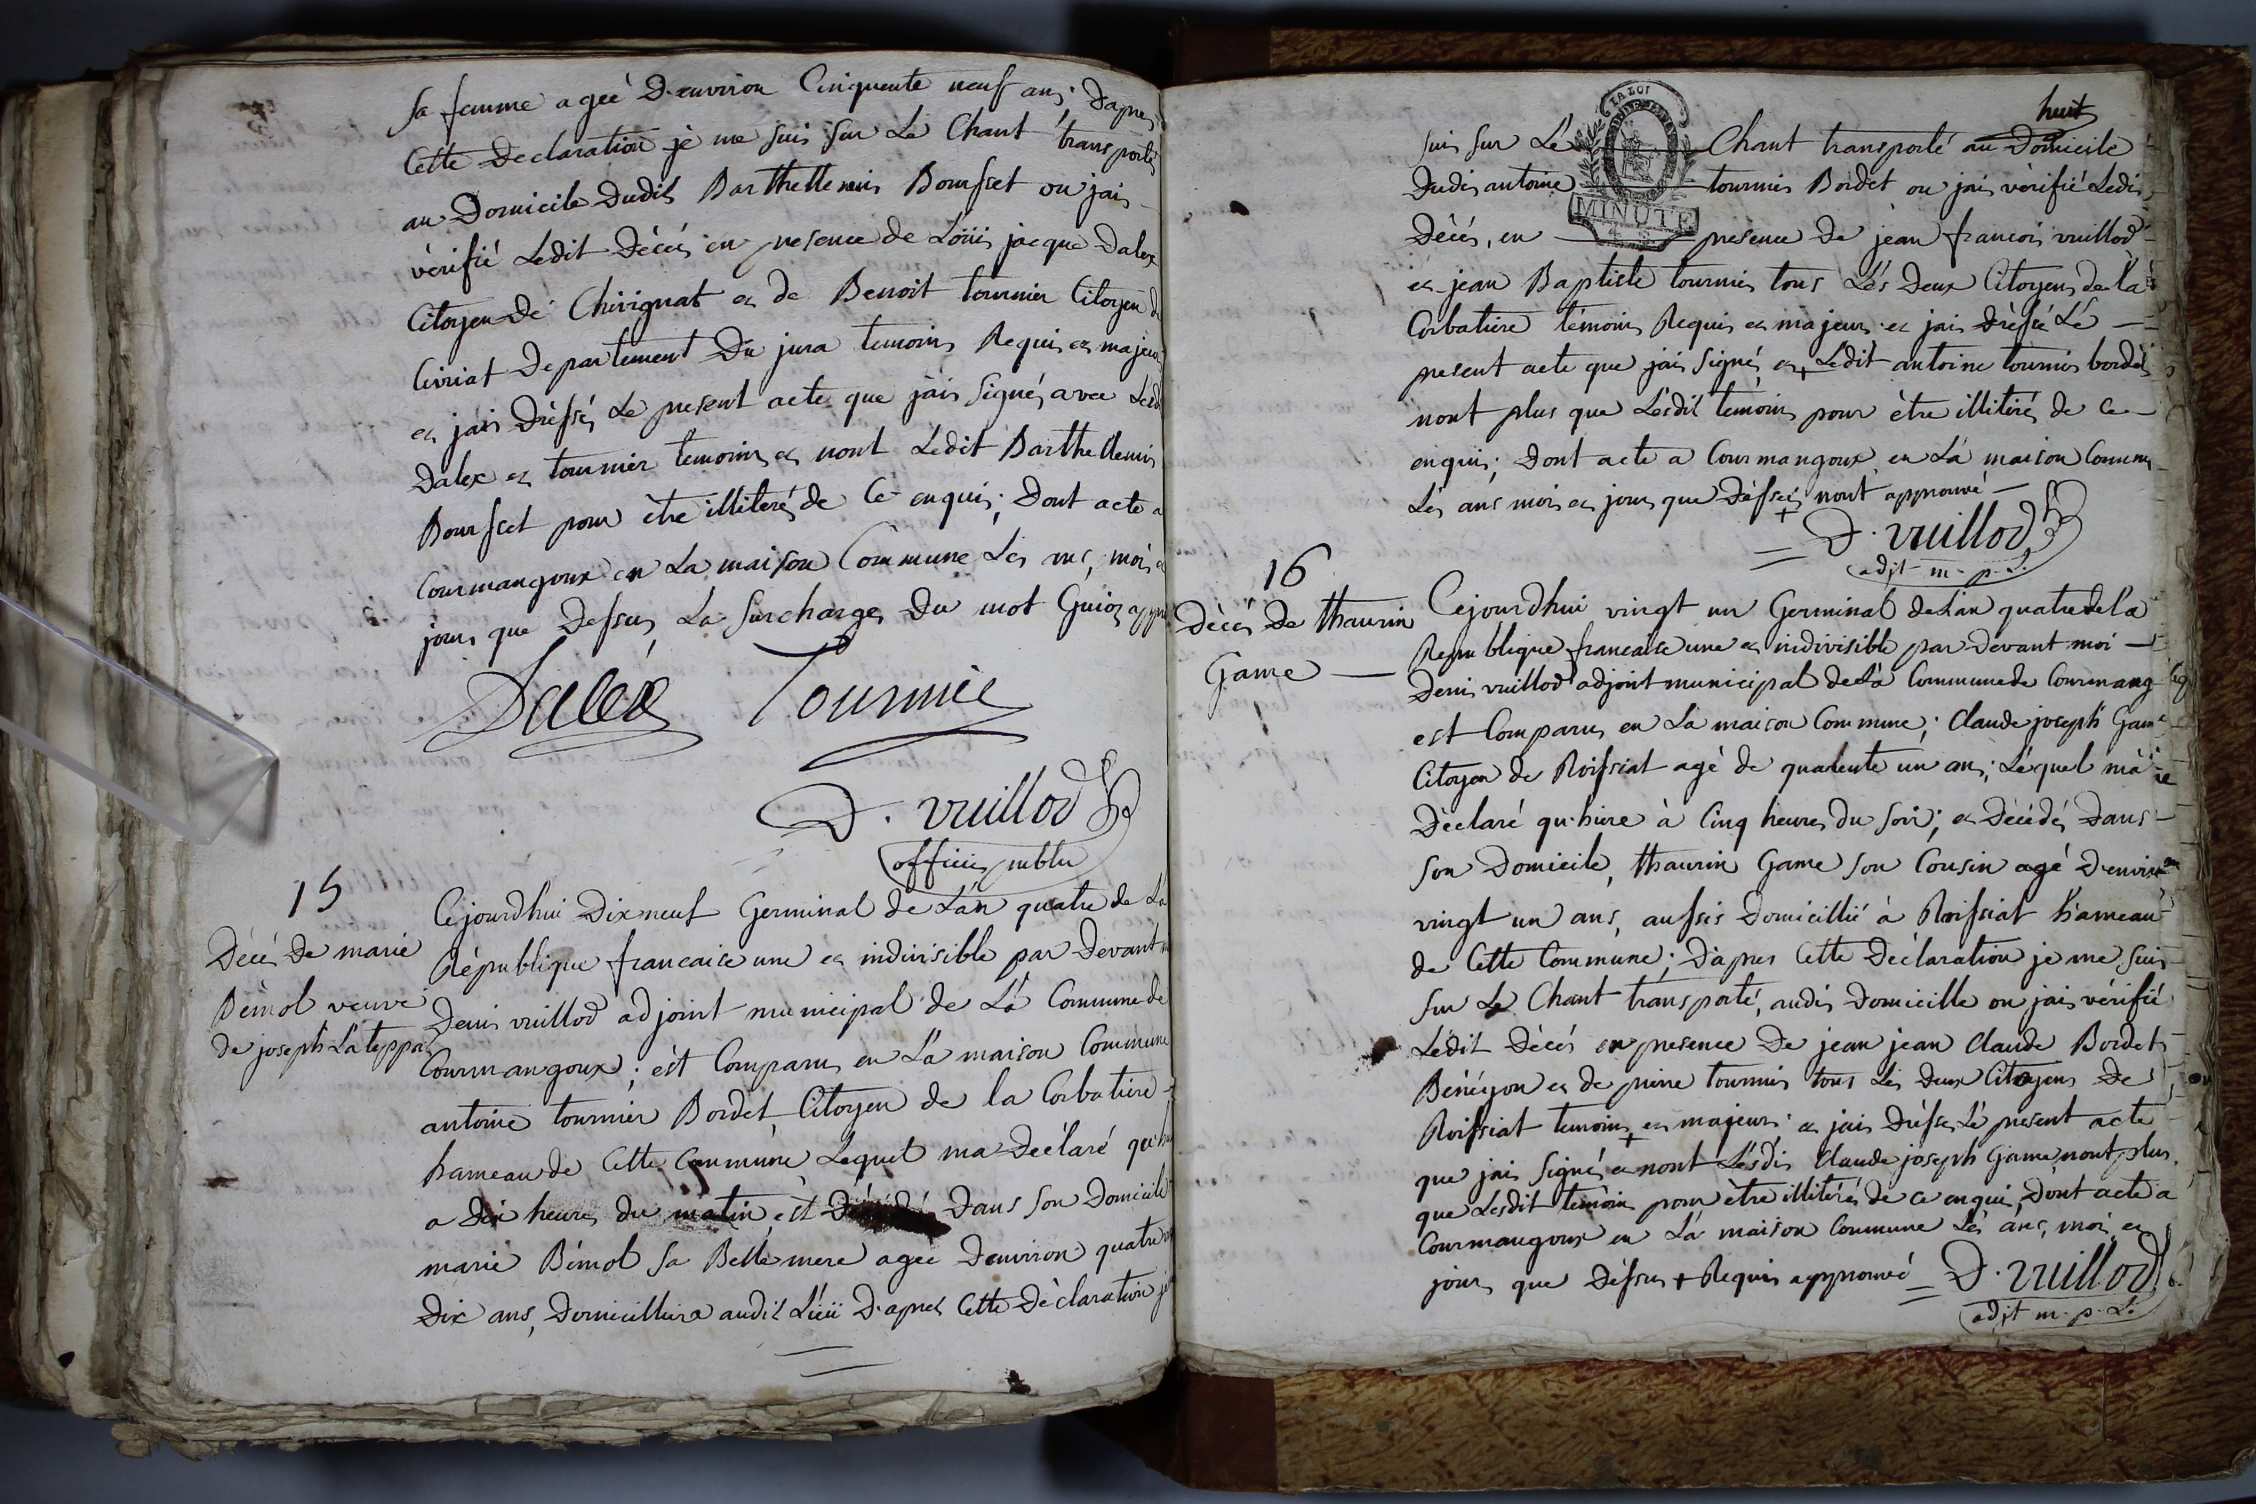 Sa femme ageè D'environ Cinquente neuf ans; Dapres
Cette Declaration je me suis sur Le Chant transporté
au Domicile Dudit Barthellemis Bourfcet ou jais
vèrifié Ledit Décés en presence de Loüis jacque Dalex
Citoyen de Chivignat et de Benoit tournier Citoyen de
Civriat Departement Du jura temoins Requis et majeur
et jais Drèssés Le present acte que jais Signés avec Lesd
Dalex et tournier temoins et nont Ledit Barthellemis
Bourfcet pour ètre illiterés de Ce enquis; Dont acte a
Courmangoux en La maison Commune Les ans, mois et
jours que Dessus La Surcharge Du mot Guion appr
Dalex Tournie
D. vuillod
officier publu
15
Décés De marie
Bèmol veuve
de joseph Lateppa
Cejourdhui Dixneuf Germinal de L'an quatre de La
République francaise une et indivisible par Devant m
Denis vuillod adjoint municipal de La Commune de
Courmangoux; èst Comparu en La maison Commune
antoine tournier Bordet Citoyen de la Corbatiere
hameau de Cette Commune Lequel ma Déclaré qu'hi
a Dix heures du matin, èst Décédé Dans Son Domicile
marie Bémol Sa Belle mere agee Denviron quatre vi
Dix ans, Domicilliere audit Lieü D'apres Cette Dèclaration je
huit
LA LOI
MINUTE
suis sur Le Chant transporté au Domicile
Dudis antoine tournies Bordet ou jais vèrifié Ledis
Décés, en presence De jean francois vuillod
et jean Baptiste tournies tous Lés Deux Citoyens de La
Corbatiere témoins Requis et majeurs et jais Drèssé Lé
present acte que jais Signés et + Ledit antoine tournies bordet
nont plus que Lésdit temoins pour ètre illiterés de Ce
enquis; Dont acte a Courmangoux en La maison Commu
Lés ans mois et jours que Dèssus + nont approuvé
D. vuillod
adjt m. p. L.
16
Décés De thaurin
Game
Cejourdhui vingt un Germinal de Lan quatre de la
Republique francaise une et indivisible par Devant moi
Denis vuillod adjoint municipal de La Commune de Courmang
est Comparu en La maison Commune; Claude joseph Game
Citoyen de Roissiat agè de quarente un ans; Léquel ma
Dèclaré qu'hiere à Cinq heures du soir; et Décédés Dans
Son Domicile, thaurin Game son Cousin agé D'environ
vingt un ans, aussis Domicillié à Roissiat hameau
de Cette Commune; Dapres Cette Déclaration je me suis
sur Le Chant transporté, audis Domicille ou jais vérifié
Ledit Décés en presence De jean jean Claude Bordet
Benéyon et de pirre tournies tous Les Deux Citoyens De
Roissiat temoins + et majeurs et jais Drèsses Lé present acte
que jais Signé et nont Lésdis Claude joseph Game nont plus
que Lesdit temoin pour ètre illitérés de Ce enqui, Dont acte a
Courmangoux en La maison Commune Les ans, moi et
jours que Dèssus + Requis approuvé D. vuillod
adjt m. p. L.